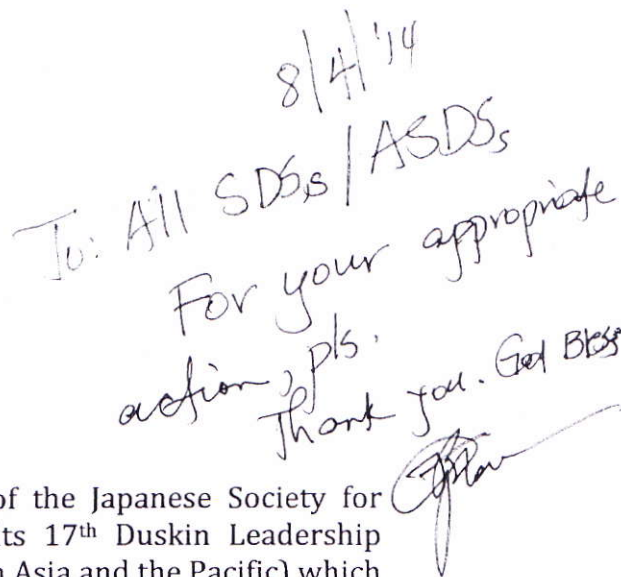 8/4/'14
To: All SDSs / ASDSs
For your appropriate
action, pls.
Thank you. God Bless
of the Japanese Society for
its 17th Duskin Leadership
n Asia and the Pacific) which